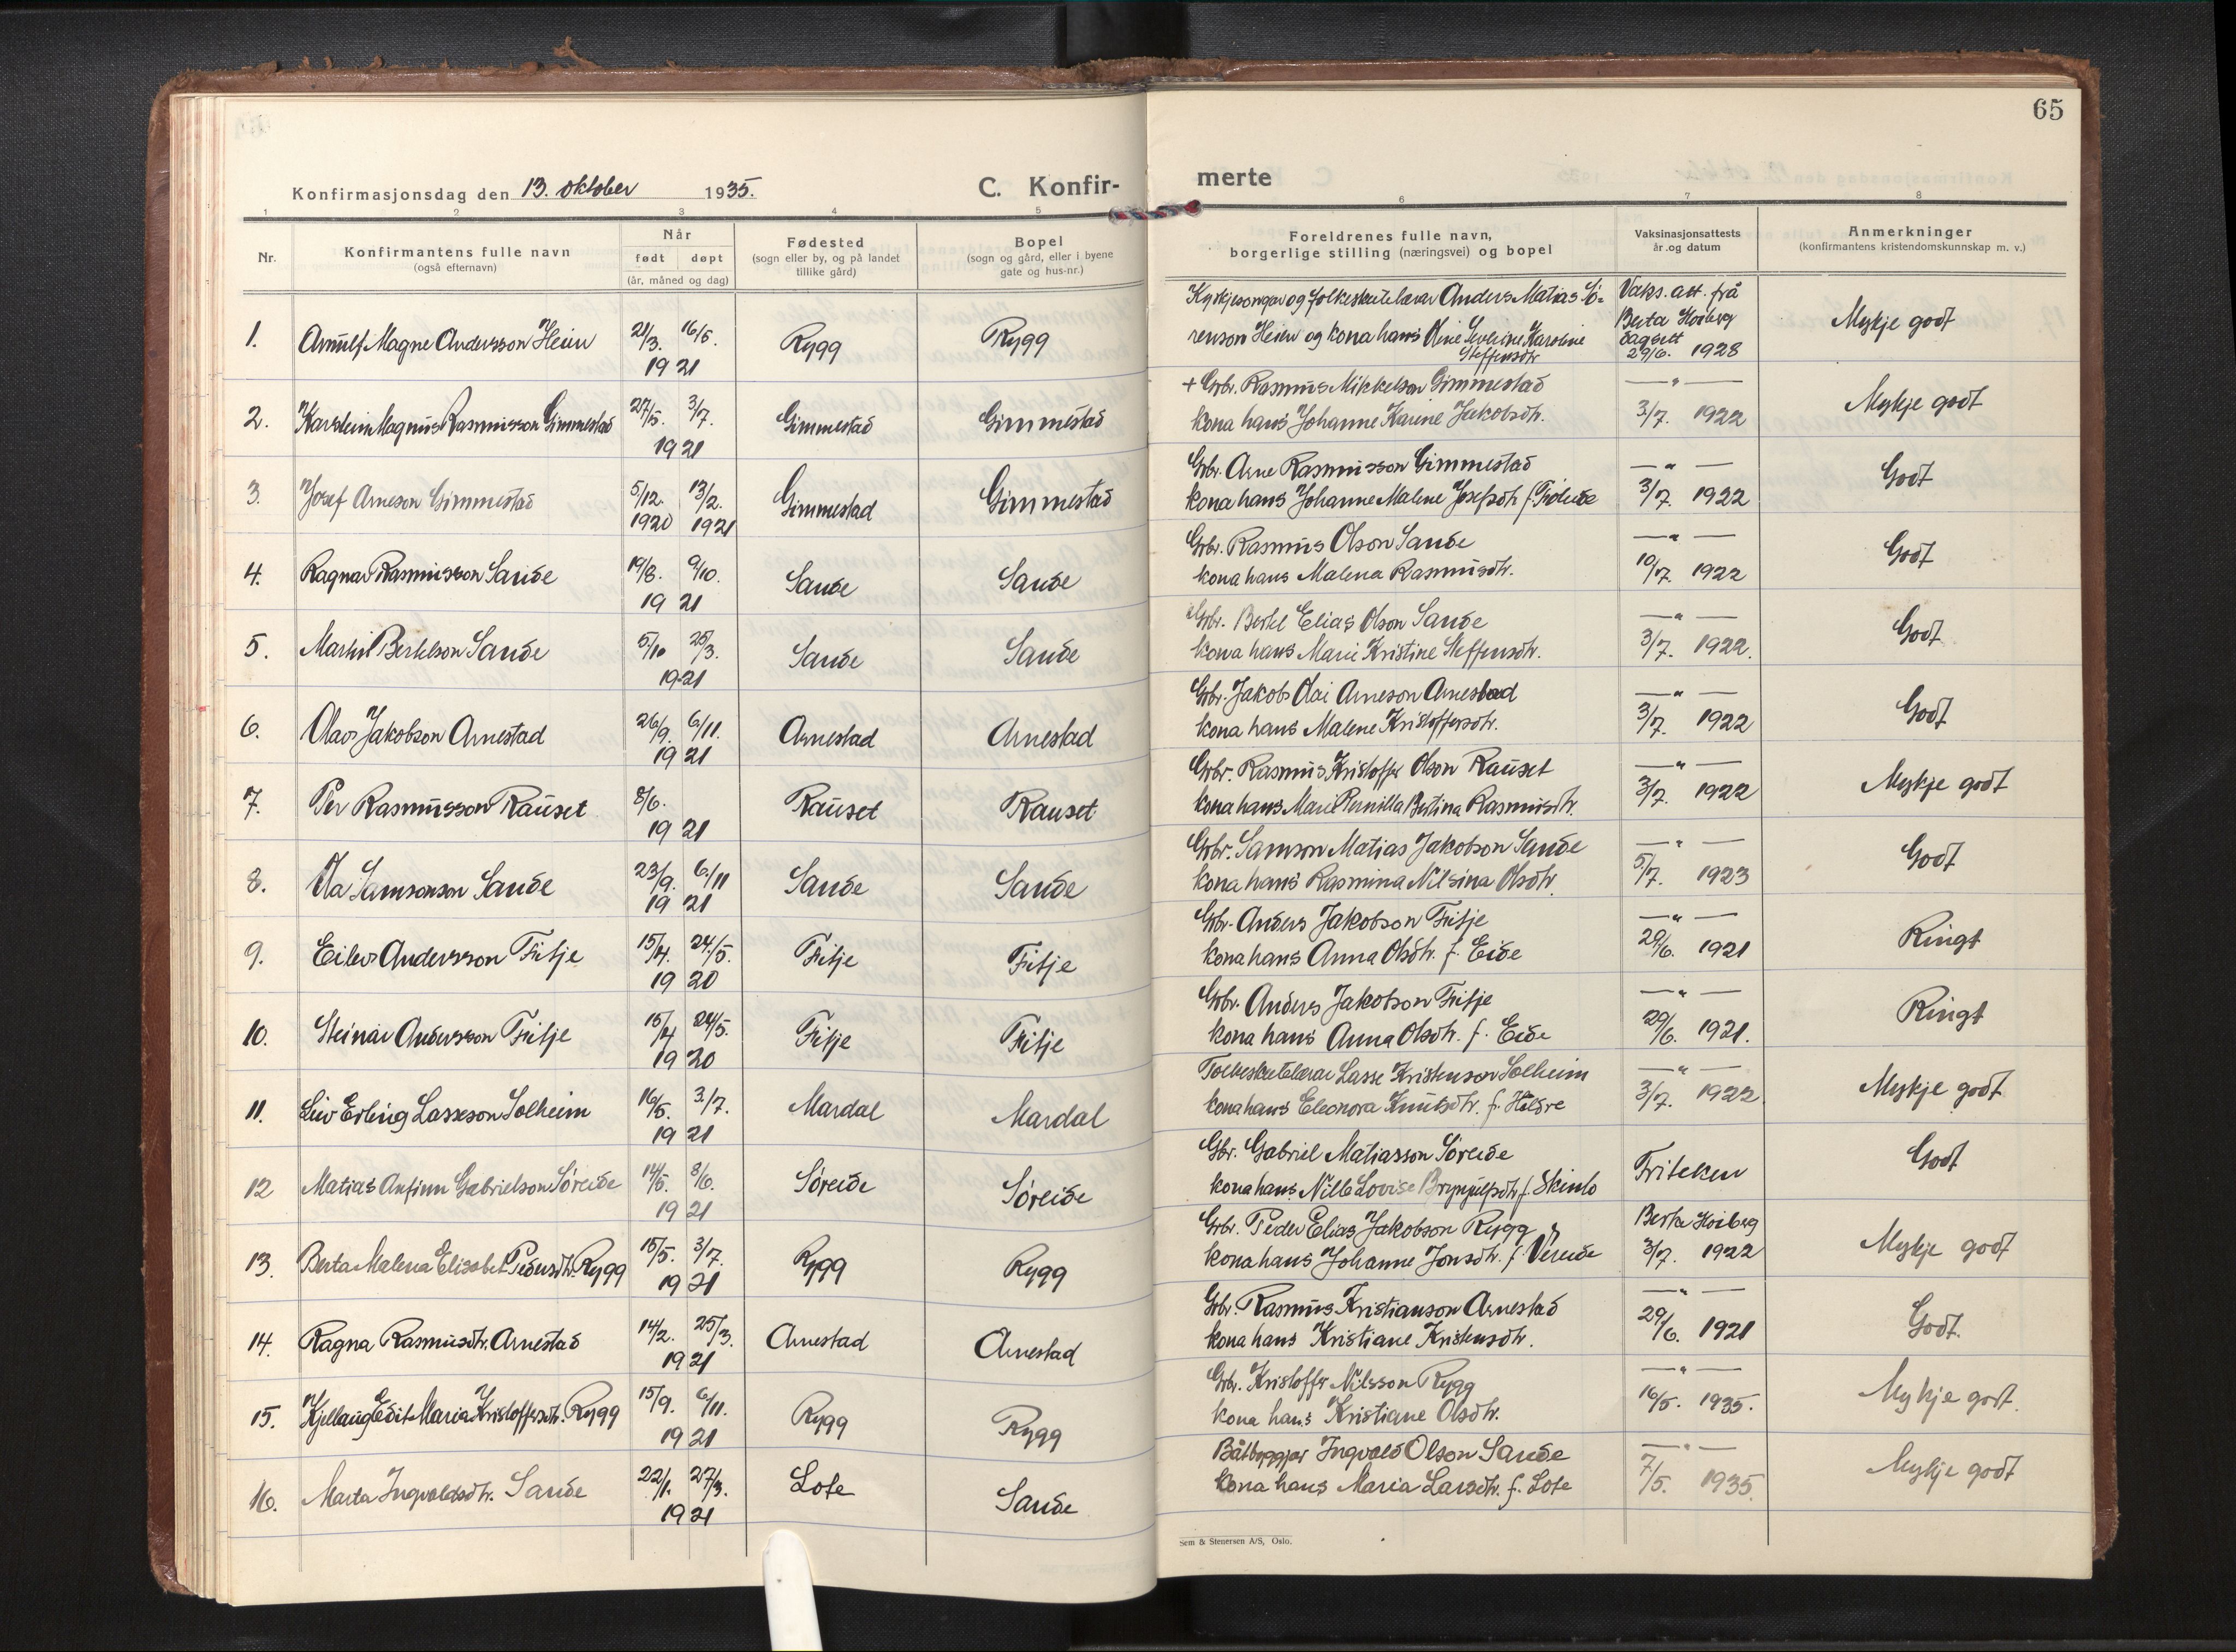 65
Konfirmasjonsdag den 13. oktober 1935.
C. Konfir-
merte
1 2 3 4 5 6 7 8
Nr.
Konfirmantens fulle navn
(også efternavn)
Når
født døpt
(år, måned og dag)
Fødested
(sogn eller by, og på landet
tillike gård)
Bopel
(sogn og gård, eller i byene
gate og hus-nr.)
Foreldrenes fulle navn,
borgerlige stilling (næringsvei) og bopel
Vaksinasjonsattests
år og datum
Anmerkninger
(konfirmantens kristendomskunnskap m. v.)
1. Arnulf Magne Andersson Heien 21/3. 16/5. 1921 Rygg Rygg
Kyrkjesongar og folkeskulelærar Anders Matias Sö-
renson Heien og kona hans Oline Severine Karoline
Steffensdtr
Vaks. att. frå
Berta Hoiberg
dagsett
29/6. 1928
Mykje godt
2. Karstein Magnus Rasmusson Gimmestad 27/5. 3/7. 1921 Gimmestad Gimmestad
+ Gbr. Rasmus Mikkelson Gimmestad
kona hans Johanne Karine Jakobsdtr.
— " —
3/7. 1922
Mykje godt
3. Josef Arneson Gimmestad 5/12. 1920 13/2. 1921 Gimmestad Gimmestad
Gbr. Arne Rasmusson Gimmestad
kona hans Johanne Malene Josefsdtr f.
— " —
3/7. 1922
Godt
4. Ragnar Rasmusson Sande 19/8. 9/10. 1921 Sande Sande
Gbr. Rasmus Olson Sande
kona hans Malena Rasmusdtr.
— " —
10/7. 1922
Godt
5. Martin Bertelson Sande 5/10 25/3. 1921 Sande Sande
Gbr. Bertel Elias Olson Sande
kona hans Marie Kristine Steffensdtr.
— " —
3/7. 1922.
Godt
6. Olav Jakobson Arnestad 26/9. 6/11. 1921 Arnestad Arnestad
Gbr. Jakob Olai Arneson Arnestad
kona hans Malene Kristoffersdtr.
— " —
3/7. 1922
Godt
7. Per Rasmusson Rauset 8/6. 1921 Rauset Rauset
Gbr. Rasmus Kristoffer Olson Rauset
kona hans Marie Pernilla Bertina Rasmusdtr.
— " —
3/7. 1922
Mykje godt
8. Ola Samsonson Sande 23/9. 6/11 1921 Sande Sande
Gbr. Samson Matias Jakobson Sande
kona hans Rasmina Nilsina Olsdtr.
— " —
5/7. 1923
Godt
9. Eilev Andersson Fitje 15/4. 24/5. 1920 Fitje Fitje
Gbr. Anders Jakobson Fitje
kona hans Anna Olsdtr. f. Eide
— " —
29/6. 1921
Ringt
10. Steinar Andersson Fitje 15/4 24/5. 1920 Fitje Fitje
Gbr. Anders Jakobson Fitje
kona hans Anna Olsdtr. f. Eide
— " —
29/6. 1921.
Ringt
11. Leiv Erling Lasseson Solheim 16/5. 3/7. 1921 Mardal Mardal
Folkeskulelærar Lasse Kristenson Solheim
kona hans Eleonora Knutsdtr. f. Hildre
— " —
3/7. 1922
Mykje godt
12 Matias Anfinn Gabrielson Søreide 14/5. 8/6. 1921 Søreide Søreide
Gbr. Gabriel Matiasson Søreide
kona hans Nille Lovise Brynjulfsdtr f. Skinlo
Friteken
Godt
13. Berta Malena Elisabet Pedersdtr. Rygg 15/5. 3/7. 1921 Rygg Rygg
Gbr. Peder Elias Jakobson Rygg
kona hans Johanne Jonsdtr. f. Vereide
Berta Hoiberg
3/7. 1922
Mykje godt
14. Ragna Rasmusdtr. Arnestad 14/2. 25/3. 1921 Arnestad Arnestad
Gbr. Rasmus Kristianson Arnestad
kona hans Kristiane Kristensdtr.
— " —
29/6. 1921
Godt.
15. Kjellaug Edit Maria Kristoffersdtr. Rygg 15/9. 6/11. 1921 Rygg Rygg
Gbr. Kristoffer Nilsson Rygg
kona hans Kristiane Olsdtr.
— " —
16/5. 1935.
Mykje godt.
16. Marta Ingvaldsdtr. Sande 22/1. 27/3. 1921 Lote Sande
Båtbyggjar Ingvald Olson Sande
kona hans Maria Larsdtr. f. Lote
— " —
7/5. 1935.
Mykje godt
Sem & Stenersen A/S, Oslo.